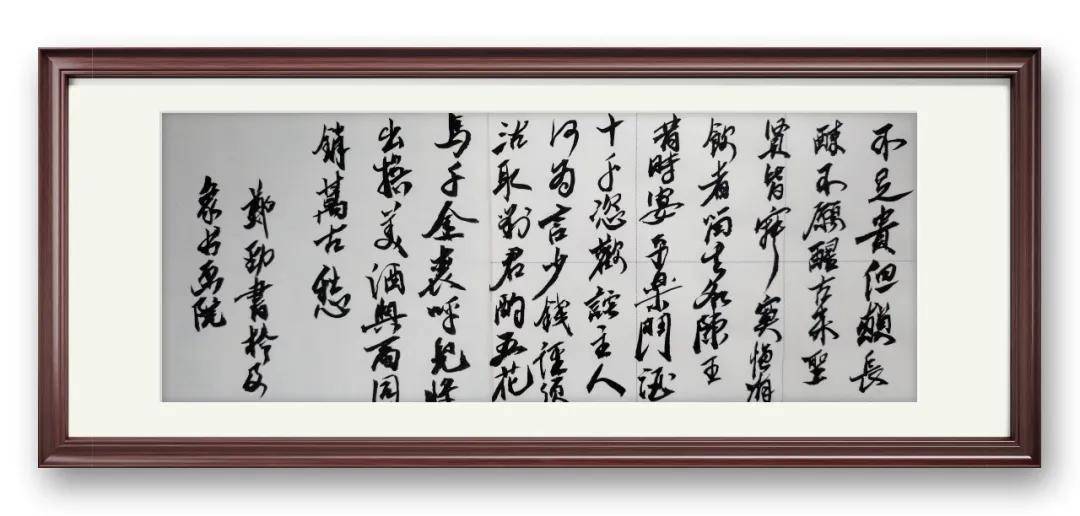 不足貴但願長
醉不願醒古來聖
賢皆寂寞惟有
飲者留其名陳王
昔時宴平樂鬥酒
十千恣歡謔主人
何為言少錢徑須
沽取對君酌五花
馬千金裘呼兒將
出換美酒與爾同
銷萬古愁
鄭勁書於
象书画院